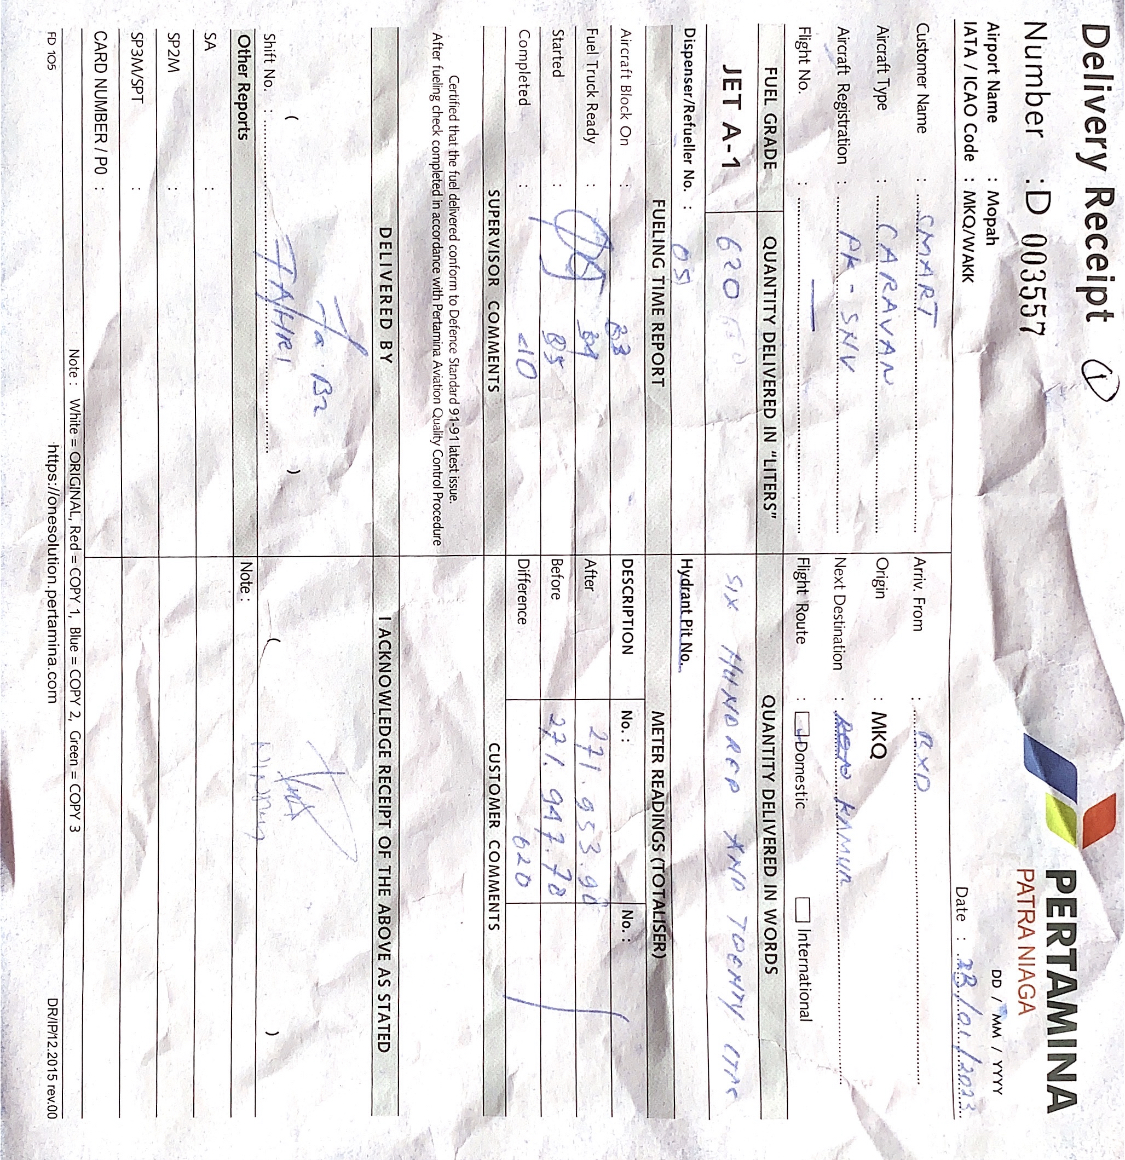 Delivery Receipt 1
PERTAMINA
PATRA NIAGA
Number : D 003557
Airport Name : Mopah
IATA / ICAO Code : MKQ/WAKK
DD / MM / YYYY
Date : 28/01/2023
Customer Name : SMART
Arriv. From :
Aircraft Type : CARAVAN
Origin : MKQ
Aircraft Registration : PK - SNV
Next Destination : KAMUR
Flight No. : —
Flight Route : Domestic International
FUEL GRADE QUANTITY DELIVERED IN "LITERS" QUANTITY DELIVERED IN WORDS
JET A-1 620 SIX HUNDRED AND TWENTY LTR
Dispenser/Refueller No. : 05 Hydrant Pit No.
FUELING TIME REPORT METER READINGS (TOTALISER)
Aircraft Block On : DESCRIPTION No. : No. :
Fuel Truck Ready : After 271.953.98
Started : Before 271.947.78
Completed : Difference 620
SUPERVISOR COMMENTS CUSTOMER COMMENTS
Certified that the fuel delivered conform to Defence Standard 91-91 latest issue.
After fueling check completed in accordance with Pertamina Aviation Quality Control Procedure
DELIVERED BY I ACKNOWLEDGE RECEIPT OF THE ABOVE AS STATED
( ) ( )
Shift No. :
Other Reports Note :
SA :
SP2M :
SP3M/SPT :
CARD NUMBER / P0 :
Note : White = ORIGINAL, Red = COPY 1, Blue = COPY 2, Green = COPY 3
FD 105 https://onesolution.pertamina.com DR/IP/12.2015 rev.00